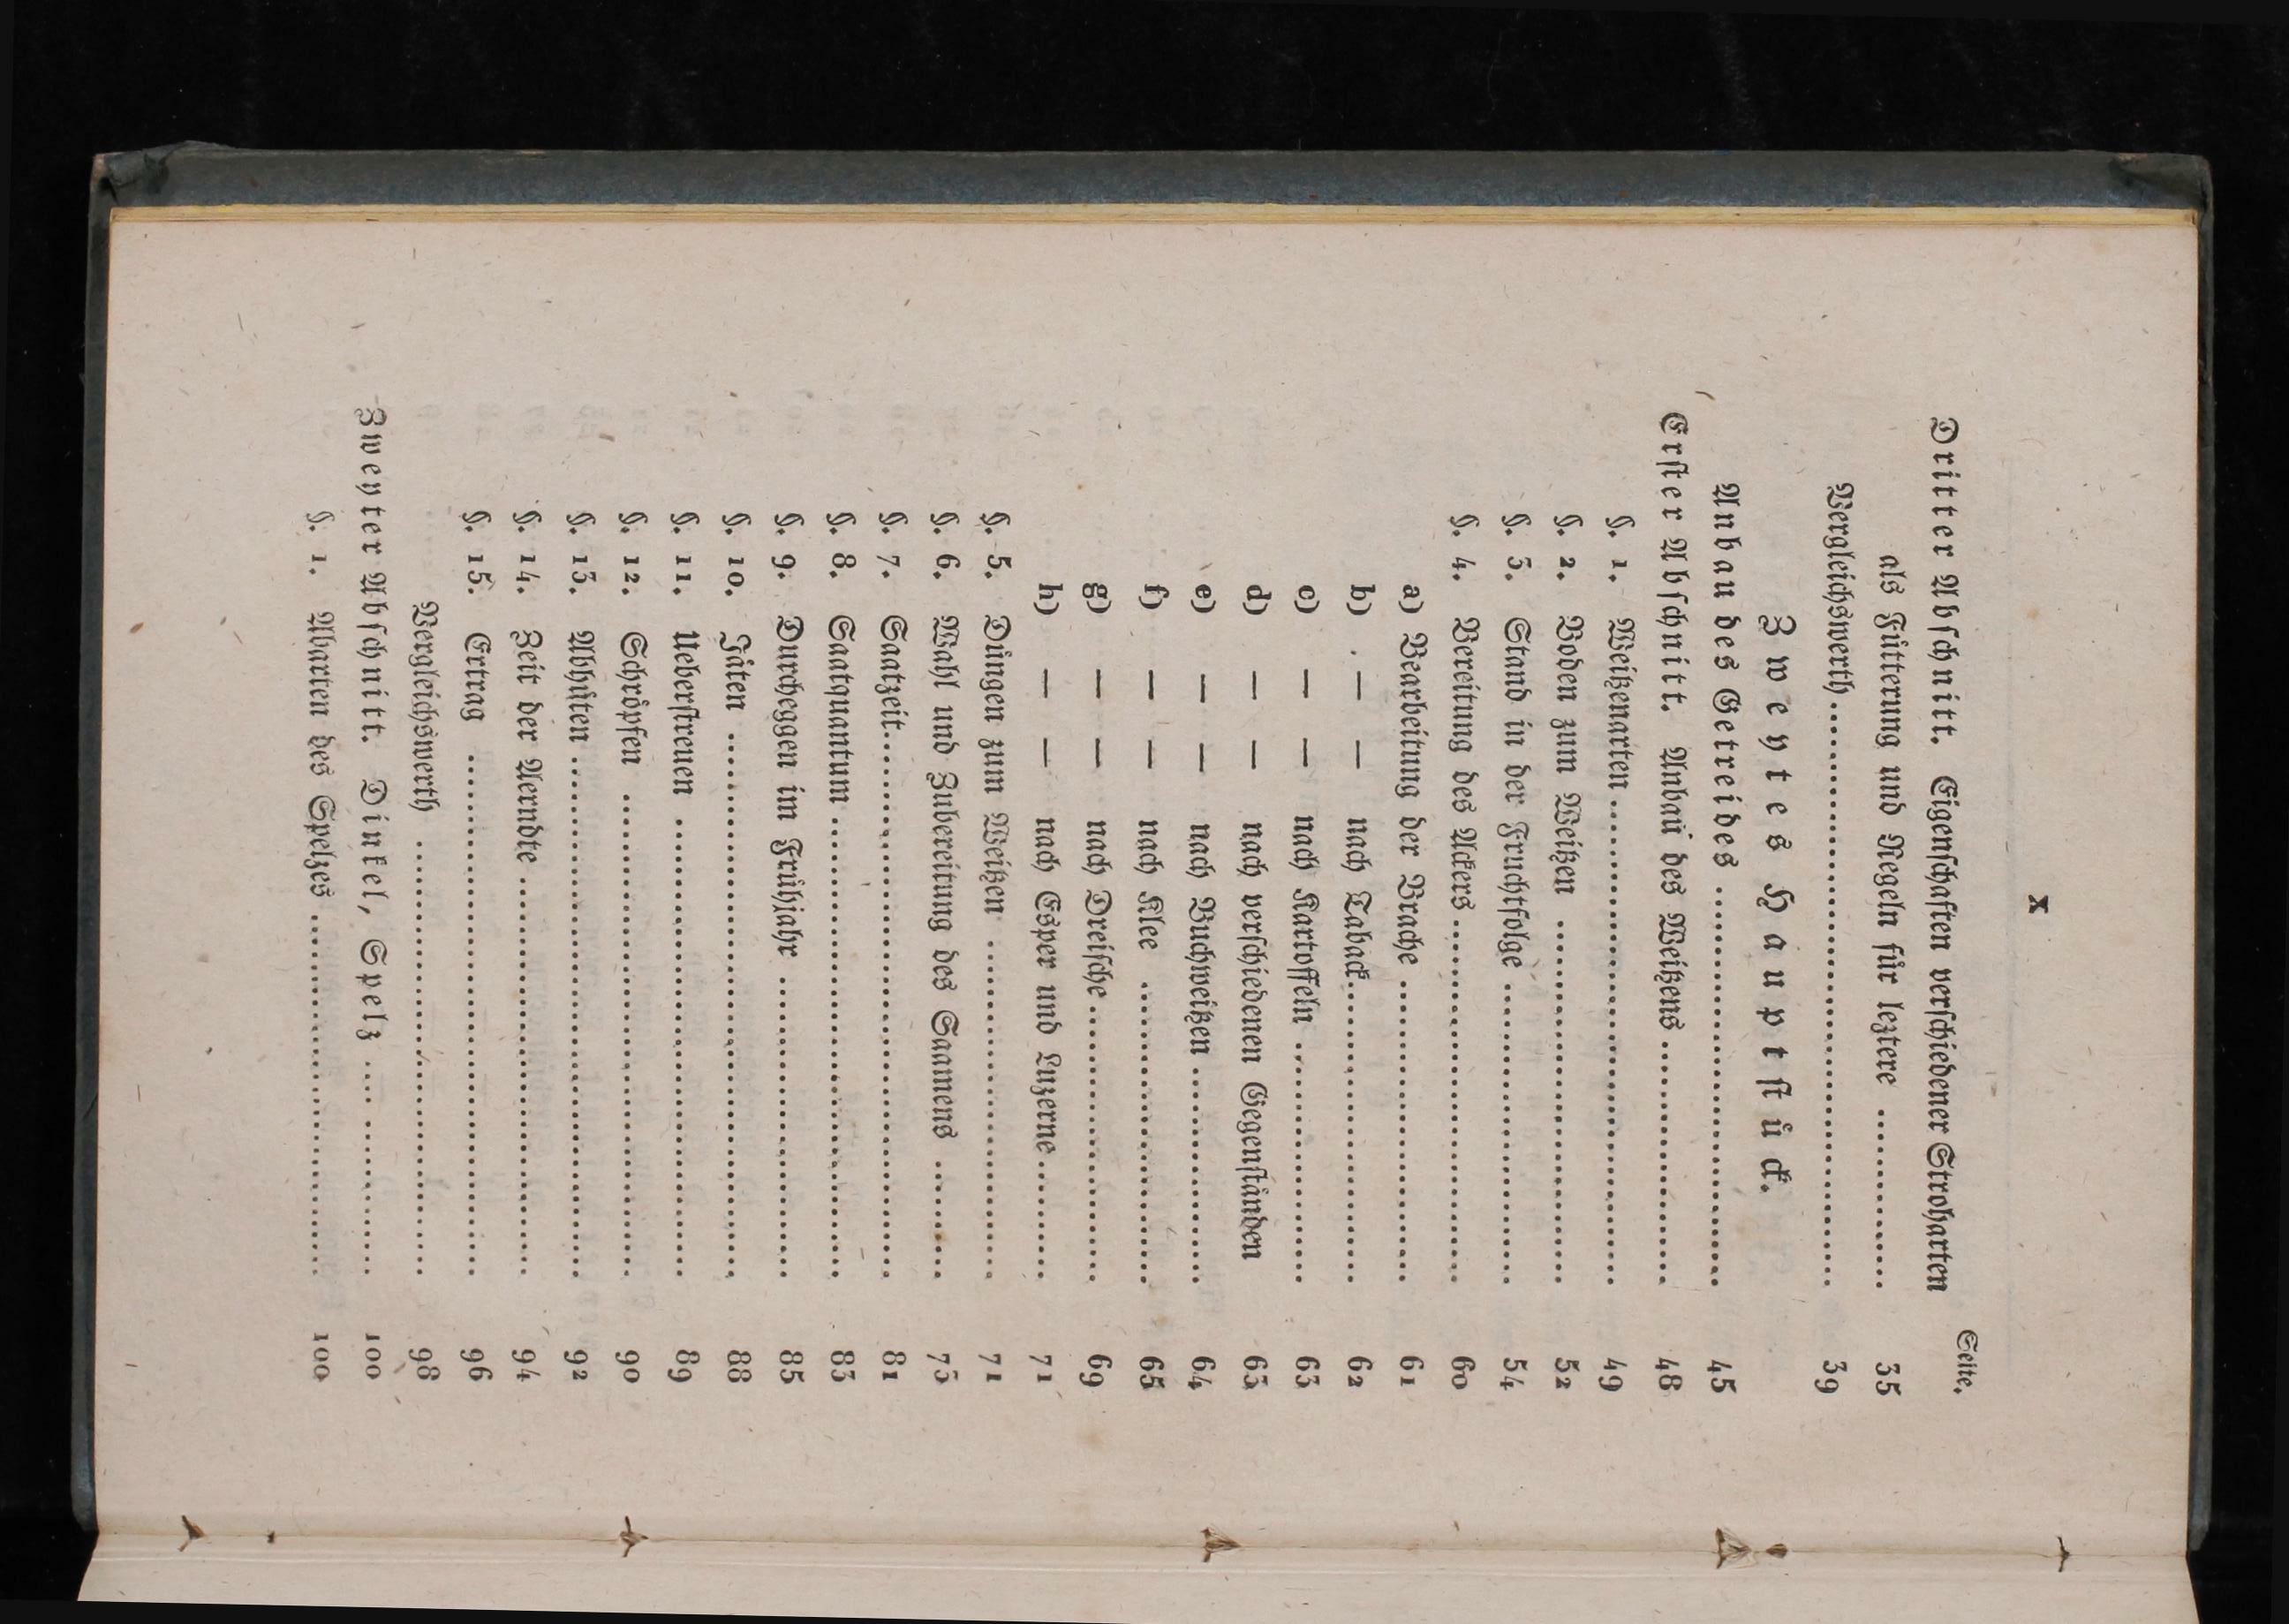 X
Seite.
Dritter Abschnitt. Eigenschaften verschiedener Stroharten
als Fütterung und Regeln für leztere .................. 35
Vergleichswerth ............................................................ 39
Zweytes Hauptstück.
Anbau des Getreides ........................................ 45
Erster Abschnitt. Anbau des Weitzens ........................ 48
§. 1. Weitzenarten ................................................ 49
§. 2. Boden zum Weitzen .................................... 52
§. 3. Stand in der Fruchtfolge .............................. 54
§. 4. Bereitung des Ackers .................................... 60
a) Bearbeitung der Brache .............................. 61
b) — — nach Taback .............................. 62
c) — — nach Kartoffeln ........................ 63
d) — — nach verschiedenen Gegenständen 63
e) — — nach Buchweitzen ...................... 64
f) — — nach Klee .............................. 65
g) — — nach Dreische ............................ 69
h) — — nach Esper und Luzerne ............ 71
§. 5. Düngen zum Weitzen .................................. 71
§. 6. Wahl und Zubereitung des Saamens ............ 73
§. 7. Saatzeit ...................................................... 81
§. 8. Saatquantum .............................................. 83
§. 9. Durcheggen im Frühjahr .............................. 85
§. 10. Jäten ........................................................ 88
§. 11. Ueberstreuen .............................................. 89
§. 12. Schröpfen .................................................. 90
§. 13. Abhüten .................................................... 92
§. 14. Zeit der Aerndte ........................................ 94
§. 15. Ertrag ...................................................... 96
Vergleichswerth .......................................... 98
Zweyter Abschnitt. Dinkel, Spelz .................... 100
§. 1. Abarten des Spelzes .................................... 100